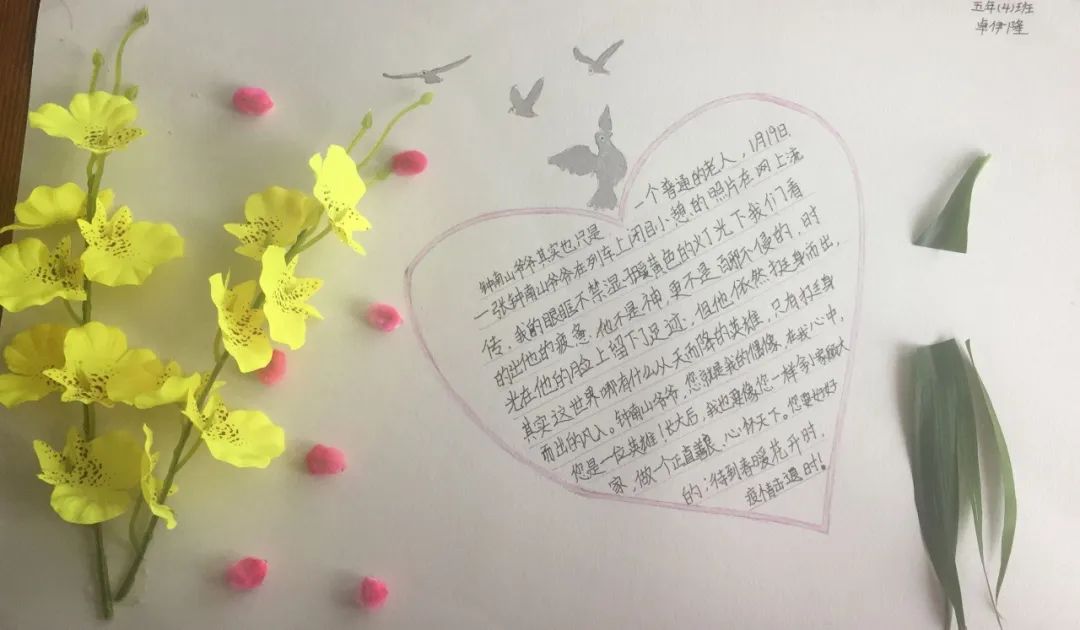 五年(4)班
卓伊隆
钟南山爷爷其实也只是一个普通的老人，1月19日
一张钟南山爷爷在列车上闭目小憩的照片在网上流
传，我的眼眶不禁湿了，暖黄色的灯光下我们看
的出他的疲惫，他不是神，更不是百毒不侵的，时
光在他的脸上留下了足迹，但他依然挺身而出，
其实这世界哪有什么从天而降的英雄，只有挺身
而出的凡人。钟南山爷爷，您就是我的偶像，在我心中，
您是一位英雄！长大后，我也要像您一样舍小家顾大
家，做一个正直善良、心怀天下。您要好好
的；待到春暖花开时，
疫情击退时！